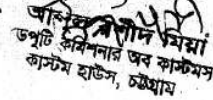 মিয়া
ডেপুটি কমিশনার অব কাস্টমস
কাস্টম হাউস, চট্টগ্রাম